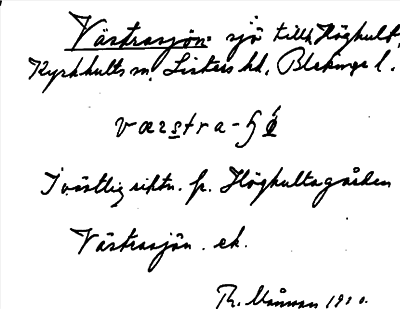 Västrasjön: sjö tillh. Höghult,
Kyrkhults sn, Listers hd, Blekinge l.
I västlig riktn. fr. Höghultagården
Västrasjön. ek.
Th.